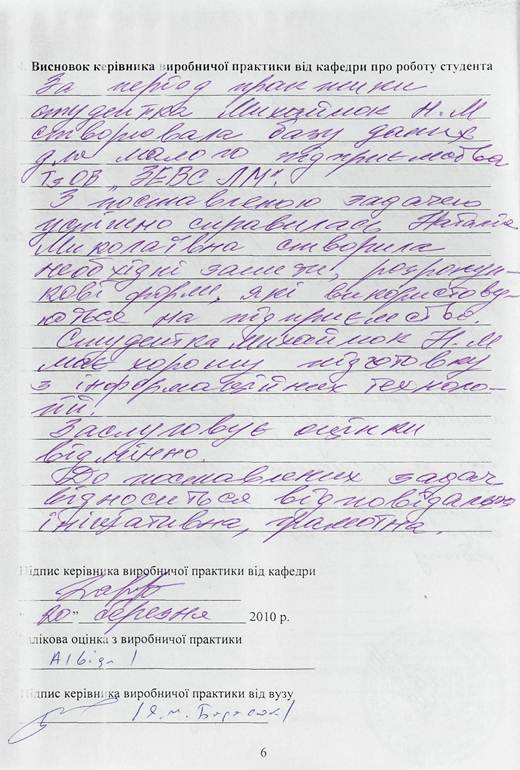 Висновок керівника виробничої практики від кафедри про роботу студента
За період практики
студентка Михаймюк Н.М
створювала базу даних
для малого підприємства
ТзОВ „ЗЕВС ЛМ".
З поставленою задачею
успішно справилась, Наталія
Миколаївна створила
необхідні запити, розрахун-
кові форми, які використову-
ються на підприємстві.
Студентка Михаймюк Н.М
має хорошу підготовку
з інформаційних техноло-
гій.
Заслуговує оцінки
відмінно.
До поставлених задач
відноситься відповідально
ініціативна, грамотна.
Підпис керівника виробничої практики від кафедри
20" березня 2010 р.
Залікова оцінка з виробничої практики
А/відм/
Підпис керівника виробничої практики від вузу
6